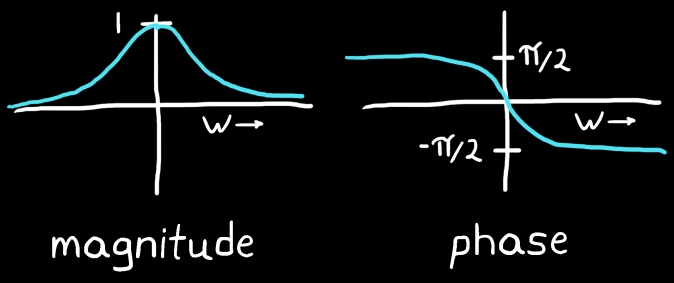 1
W→
magnitude
π/2
W→
-π/2
phase